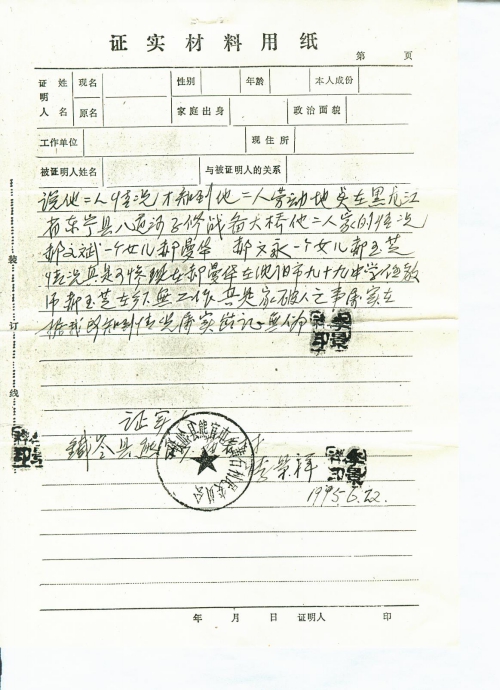 证实材料用纸
第 页
证明人 姓名 现名 性别 年龄 本人成份
原名 家庭出身 政治面貌
工作单位 现住所
被证明人姓名 与被证明人的关系
说他二人情况才知到他二人劳动地点在黑龙江
省东宁县八道河子修战备大桥他二人家的情况
郝文斌一个女儿郝曼华 郝文永一个女儿郝玉芝
情况真是可惨现在郝曼华在沈阳市九十九中学任教
师郝玉芝在 无工作真是家破人亡事属实在
据我所知到情况属实

证实
铁岭县
李景祥
1995.6.22.
装
订
线
年 月 日 证明人 印